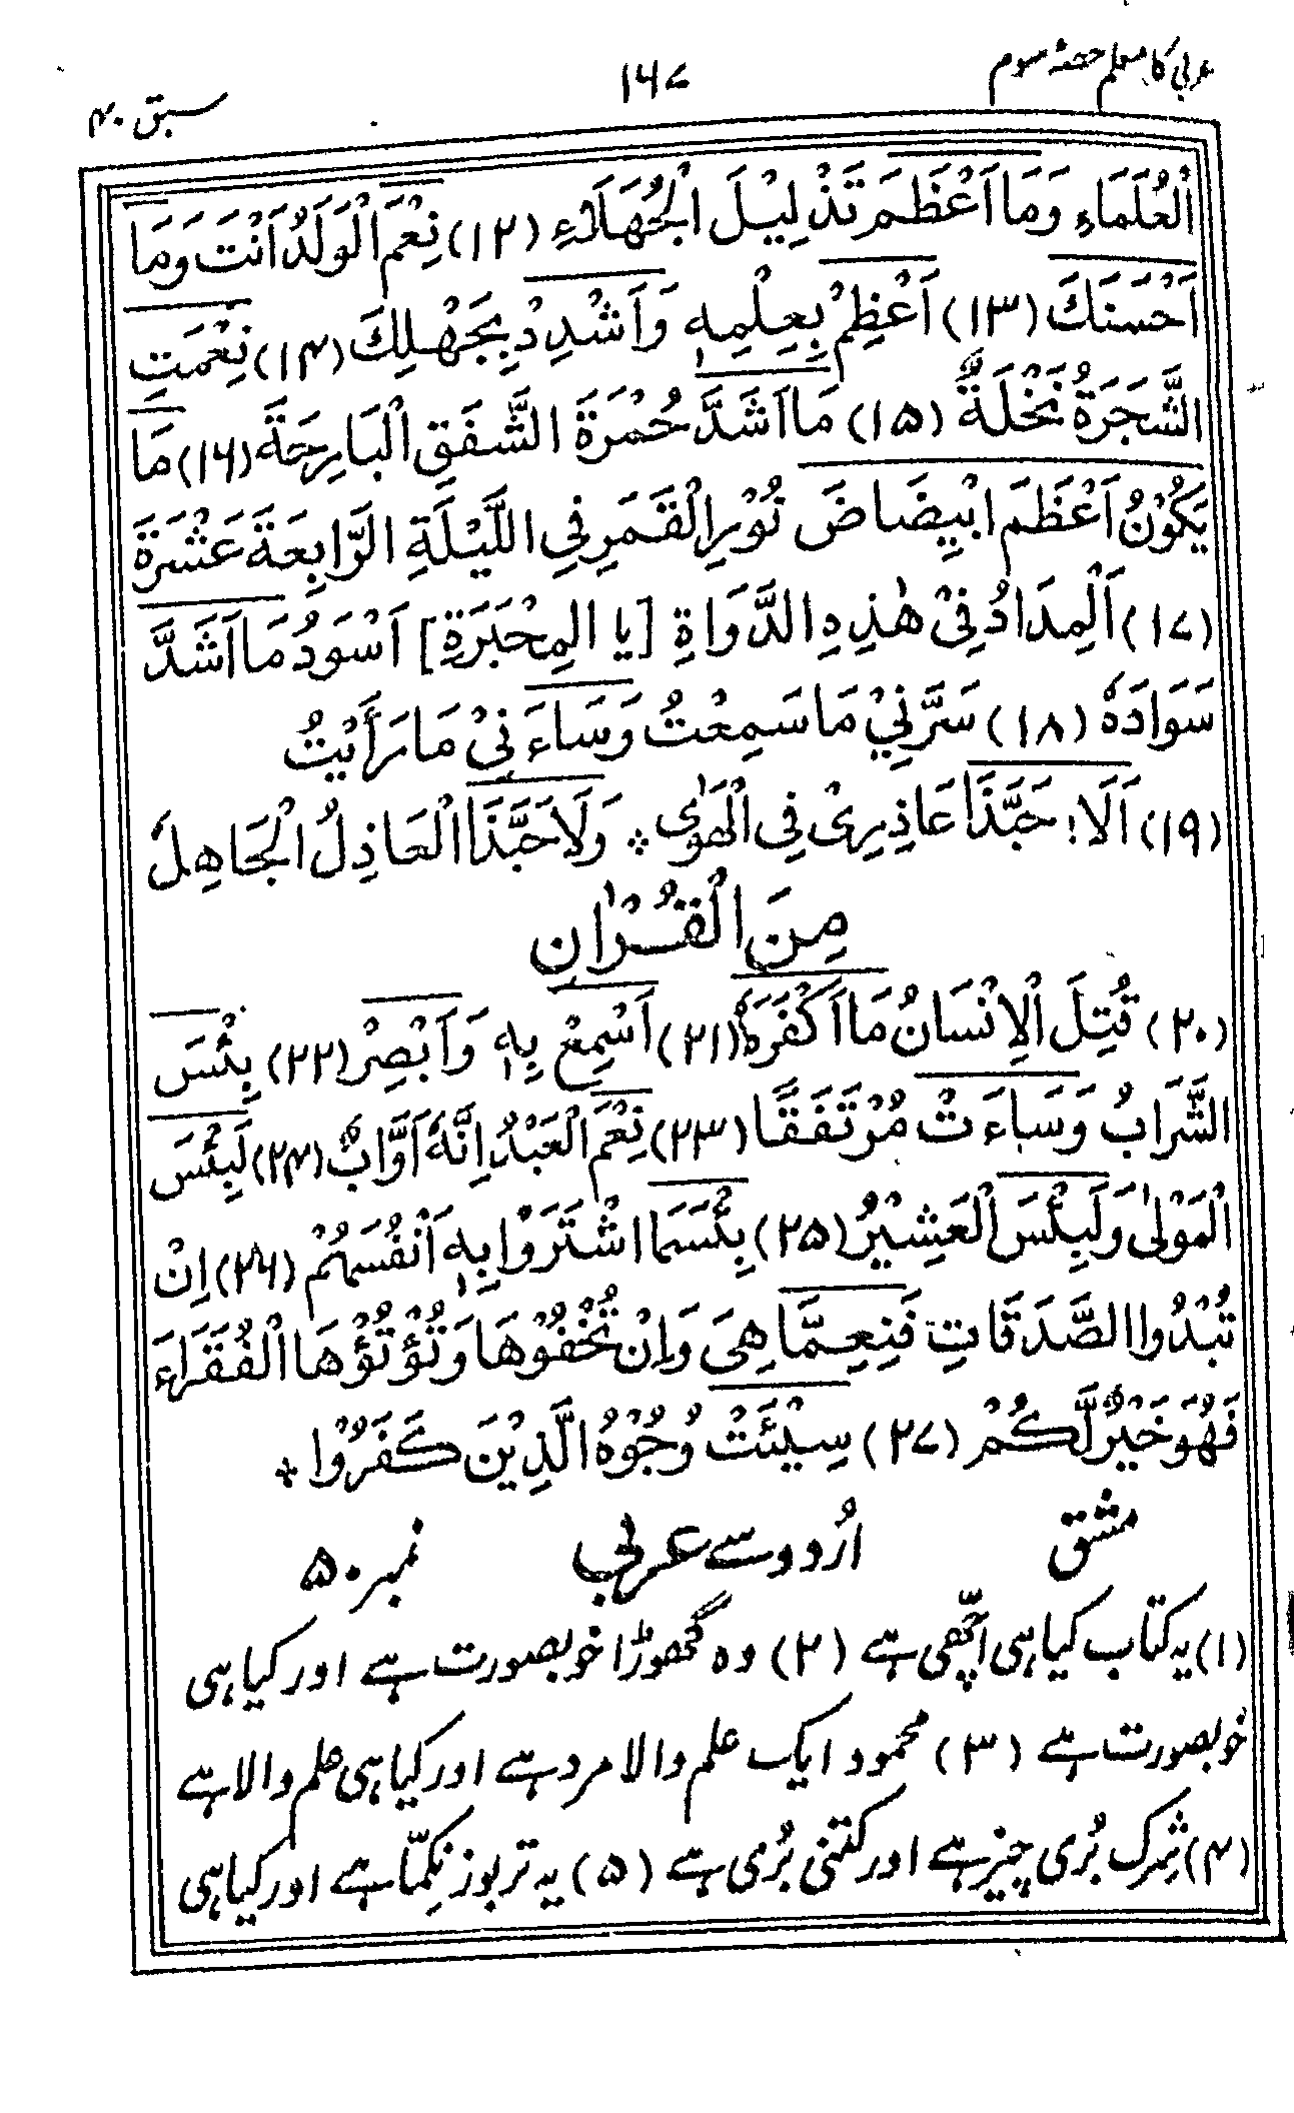 عربی کا معلم حصۂ سوم
۱۶۷
سبق ۴۰
الْعُلَمَاءِ وَمَا اَعْظَمَ تَذْلِيْلَ الْجُهَلَاءِ (۱۲) نِعْمَ الْوَلَدُ اَنْتَ وَمَا
اَحْسَنَكَ (۱۳) اَعْظِمْ بِعِلْمِهٖ وَاَشْدِدْ بِجَهْلِكَ (۱۴) نِعْمَتِ
الشَّجَرَةُ نَخْلَةٌ (۱۵) مَا اَشَدَّ حُمْرَةَ الشَّفَقِ الْبَارِحَةَ (۱۶) مَا
يَكُوْنُ اَعْظَمَ ابْيِضَاضَ نُوْرِ الْقَمَرِ فِي اللَّيْلَةِ الرَّابِعَةَ عَشْرَةَ
(۱۷) اَلْمِدَادُ فِيْ هٰذِهِ الدَّوَاةِ [يا المِحْبَرَةِ] اَسْوَدُ مَا اَشَدَّ
سَوَادَهٗ (۱۸) سَرَّنِيْ مَا سَمِعْتُ وَسَاءَنِيْ مَا رَأَيْتُ
(۱۹) اَلَا! حَبَّذَا عَاذِرِيْ فِي الْهَوٰى ٭ وَلَا حَبَّذَا الْعَاذِلُ الْجَاهِلُ
مِنَ الْقُرْاٰنِ
(۲۰) قُتِلَ الْاِنْسَانُ مَا اَكْفَرَهٗ (۲۱) اَسْمِعْ بِهٖ وَاَبْصِرْ (۲۲) بِئْسَ
الشَّرَابُ وَسَاءَتْ مُرْتَفَقًا (۲۳) نِعْمَ الْعَبْدُ اِنَّهٗ اَوَّابٌ (۲۴) لَبِئْسَ
الْمَوْلٰى وَلَبِئْسَ الْعَشِيْرُ (۲۵) بِئْسَمَا اشْتَرَوْا بِهٖ اَنْفُسَهُمْ (۲۶) اِنْ
تُبْدُوا الصَّدَقَاتِ فَنِعِمَّا هِيَ وَاِنْ تُخْفُوْهَا وَتُؤْتُؤْهَا الْفُقَرَاءَ
فَهُوَ خَيْرٌ لَّكُمْ (۲۷) سِيْئَتْ وُجُوْهُ الَّذِيْنَ كَفَرُوْا ٭
مشق اُردو سے عربی نمبر ۵۰
(۱) یہ کتاب کیا ہی اچھی ہے (۲) وہ گھوڑا خوبصورت ہے اور کیا ہی
خوبصورت ہے (۳) محمود ایک علم والا مرد ہے اور کیا ہی علم والا ہے
(۴) شِرک بُری چیز ہے اور کتنی بُری ہے (۵) یہ تربوز نِکمّا ہے اور کیا ہی